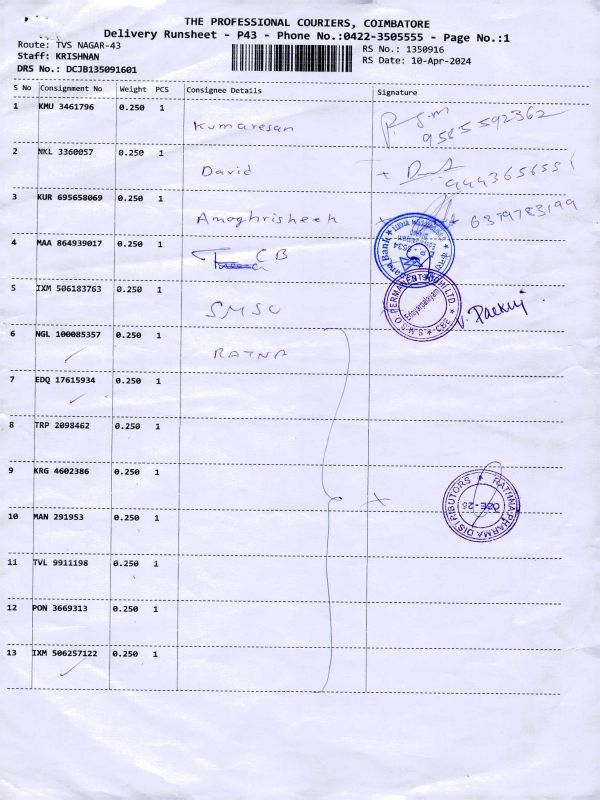 THE PROFESSIONAL COURIERS, COIMBATORE
Delivery Runsheet - P43 - Phone No.:0422-3505555 - Page No.:1
Route: TVS NAGAR-43
Staff: KRISHNAN
DRS No.: DCJB135091601
RS No.: 1350916
RS Date: 10-Apr-2024
S No Consignment No Weight PCS Consignee Details Signature
1 KMU 3461796 0.250 1
Kumaresan
9585592362
2 NKL 3360057 0.250 1
David
9443656551
3 KUR 695658069 0.250 1
Amoghrisheeh 6379783199
4 MAA 864939017 0.250 1
CB
5 IXM 506183763 0.250 1
SMSO
PERMANENT
Edayarpalayam
S.M.S.O. CBE
6 NGL 100085357 0.250 1
RATNA
7 EDQ 17615934 0.250 1
8 TRP 2098462 0.250 1
9 KRG 4602386 0.250 1
RATHNA PHARMA DISTRIBUTORS
10 MAN 291953 0.250 1
11 TVL 9911198 0.250 1
12 PON 3669313 0.250 1
13 IXM 506257122 0.250 1